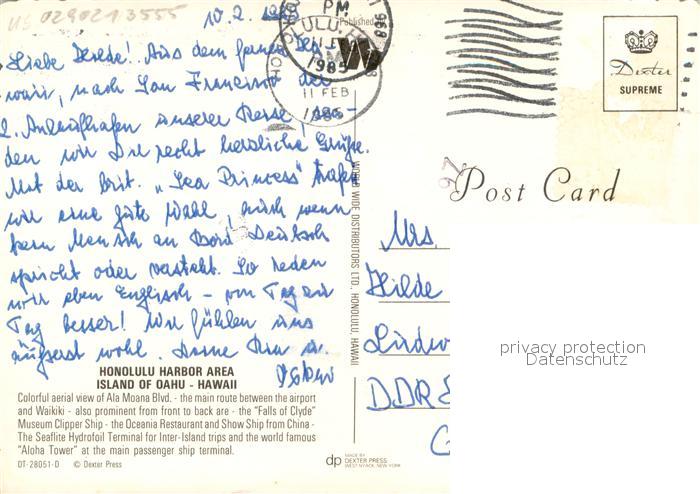 US 0290213555
10.2.
PM
HONOLULU, HI
11 FEB
1985
Published
968
PM
11 FEB
1985
Dexter
SUPREME
Liebe Hilde! Aus dem fernen
nach San Francisco der
2. Anlaufhafen unserer Reise, sen-
den wir Dir recht herzliche Grüße.
Mit der brit. „Sea Princess" trafen
wir eine gute Wahl, auch wenn
kein Mensch an Bord Deutsch
spricht oder versteht. So reden
wir eben Englisch - von Tag zu
Tag besser! Wir fühlen uns
äußerst wohl. Deine
97
Post Card
Mrs.
Hilde
DDR
WORLD WIDE DISTRIBUTORS LTD., HONOLULU, HAWAII
privacy protection
Datenschutz
HONOLULU HARBOR AREA
ISLAND OF OAHU - HAWAII
Colorful aerial view of Ala Moana Blvd. - the main route between the airport
and Waikiki - also prominent from front to back are - the "Falls of Clyde"
Museum Clipper Ship - the Oceania Restaurant and Show Ship from China -
The Seaflite Hydrofoil Terminal for Inter-Island trips and the world famous
"Aloha Tower" at the main passenger ship terminal.
DT-28051-D © Dexter Press
dp MADE BY
DEXTER PRESS
WEST NYACK, NEW YORK